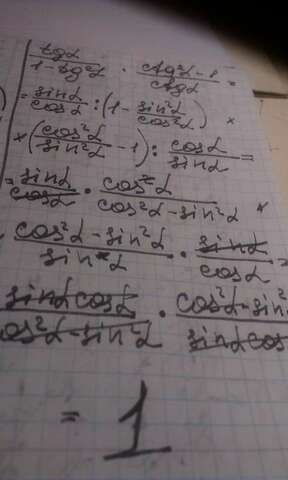 tgα / 1 - tg²α · ctg²α - 1 / ctgα =
= sinα / cosα : (1 - sin²α / cos²α) ×
× (cos²α / sin²α - 1) : cosα / sinα =
= sinα / cosα · cos²α / cos²α - sin²α ×
cos²α - sin²α / sin²α · sinα / cosα =
sinα cosα / cos²α - sin²α · cos²α - sin² / sinα cos
= 1